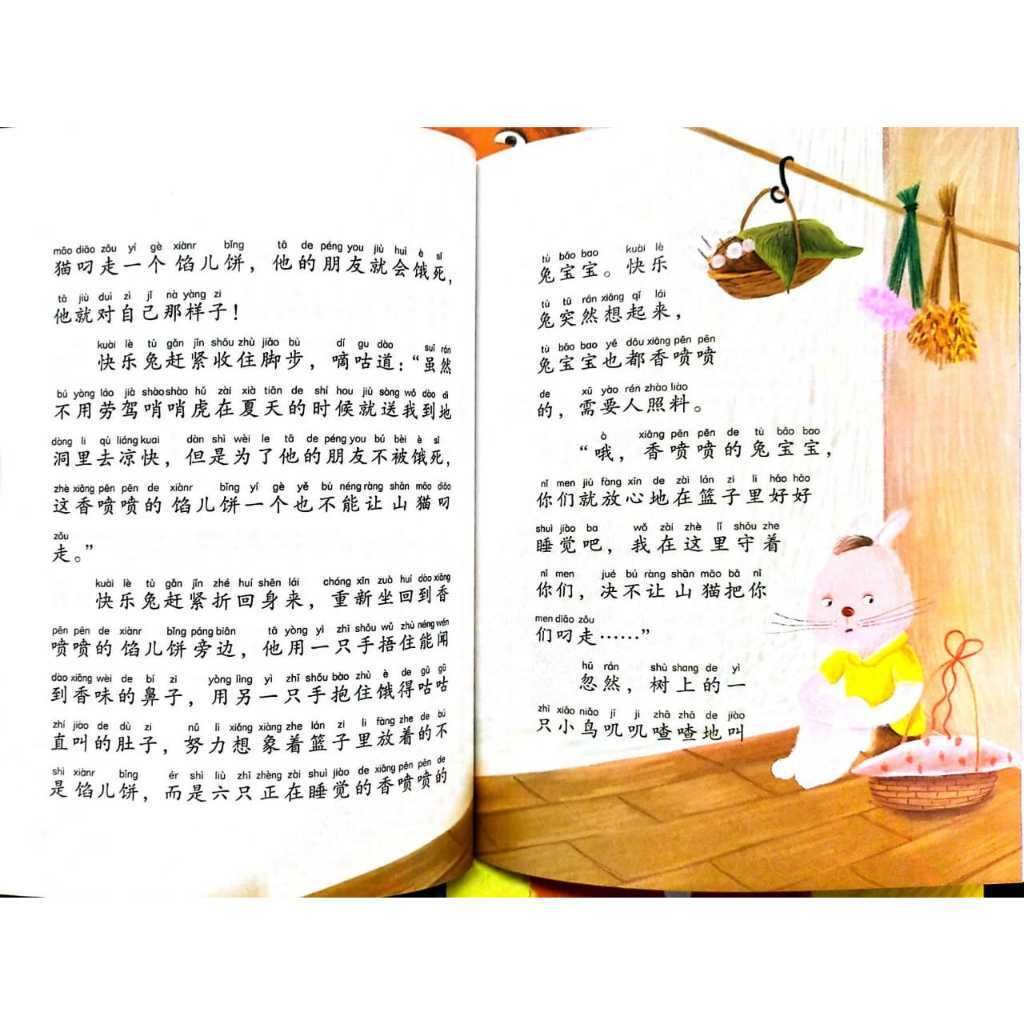 māo diāo zǒu yí gè xiànr bǐng tā de péng you jiù huì è sǐ
猫叼走一个馅儿饼，他的朋友就会饿死，
tā jiù duì zì jǐ nà yàng zi
他就对自己那样子！
kuài lè tù gǎn jǐn shōu zhù jiǎo bù dí gu dào suī rán
快乐兔赶紧收住脚步，嘀咕道：“虽然
bú yòng láo jià shào shào hǔ zài xià tiān de shí hou jiù sòng wǒ dào dì
不用劳驾哨哨虎在夏天的时候就送我到地
dòng li qù liáng kuai dàn shì wèi le tā de péng you bú bèi è sǐ
洞里去凉快，但是为了他的朋友不被饿死，
zhè xiāng pēn pēn de xiànr bǐng yí gè yě bù néng ràng shān māo diāo
这香喷喷的馅儿饼一个也不能让山猫叼
zǒu
走。”
kuài lè tù gǎn jǐn zhé huí shēn lái chóng xīn zuò huí dào xiāng
快乐兔赶紧折回身来，重新坐回到香
pēn pēn de xiànr bǐng páng biān tā yòng yì zhī shǒu wǔ zhù néng wén
喷喷的馅儿饼旁边，他用一只手捂住能闻
dào xiāng wèi de bí zi yòng lìng yì zhī shǒu bào zhù è de gū gū
到香味的鼻子，用另一只手抱住饿得咕咕
zhí jiào de dù zi nǔ lì xiǎng xiàng zhe lán zi li fàng zhe de bú
直叫的肚子，努力想象着篮子里放着的不
shì xiànr bǐng ér shì liù zhī zhèng zài shuì jiào de xiāng pēn pēn de
是馅儿饼，而是六只正在睡觉的香喷喷的
tù bǎo bao kuài lè
兔宝宝。快乐
tù tū rán xiǎng qǐ lái
兔突然想起来，
tù bǎo bao yě dōu xiāng pēn pēn
兔宝宝也都香喷喷
de xū yào rén zhào liào
的，需要人照料。
ò xiāng pēn pēn de tù bǎo bao
“哦，香喷喷的兔宝宝，
nǐ men jiù fàng xīn de zài lán zi li hǎo hǎo
你们就放心地在篮子里好好
shuì jiào ba wǒ zài zhè lǐ shǒu zhe
睡觉吧，我在这里守着
nǐ men jué bú ràng shān māo bǎ nǐ
你们，决不让山猫把你
men diāo zǒu
们叼走……”
hū rán shù shang de yì
忽然，树上的一
zhī xiǎo niǎo jī ji zhā zhā de jiào
只小鸟叽叽喳喳地叫